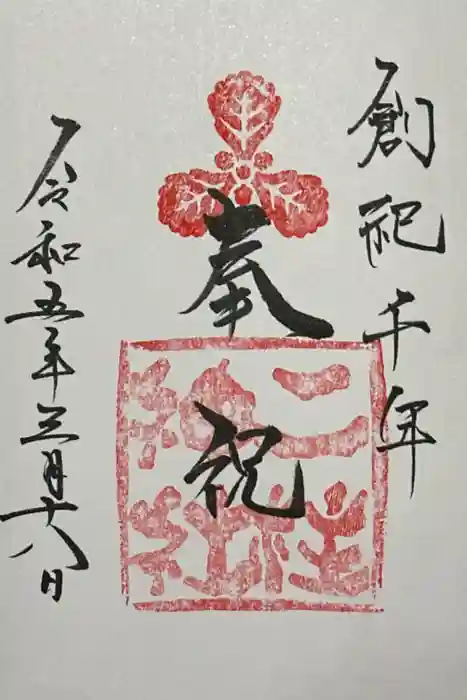 創祀千年
奉祝
令和五年三月十八日